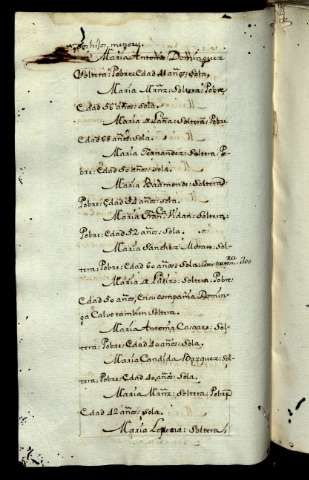 hijos, menores.
Maria Antonia Dominguez
Soltera: Pobre: Edad 41 años: Sola,
Maria Mrñz: Soltera: Pobre,
Edad 56 años: sola.
Maria de Laña: Soltera: Pobre
Edad 68 años: sola.
Maria Fernandez: Soltera, Po-
bre: Edad 50 años: sola.
Maria Baamonde: Soltera:
Pobre: Edad 54 años: sola.
Maria Franca Vidan: Soltera;
Pobre: Edad 52 años: sola.
Maria Sanchez Monte: Sol-
tera: Pobre: Edad 60 años: Sola:
Maria de Latire: Soltera, Pobre:
Edad 50 años, En su compañia Domin-
ga Calvo tambien soltera.
Maria Antonia Casgaro: Sol-
tera: Pobre: Edad 40 años: Sola.
Maria Candida Marquez: Sol-
tera: Pobre: Edad 40 años: Sola,
Maria Mrñz: Soltera: Pobre
Edad 42 años: sola.
Maria Lopezia: Soltera;